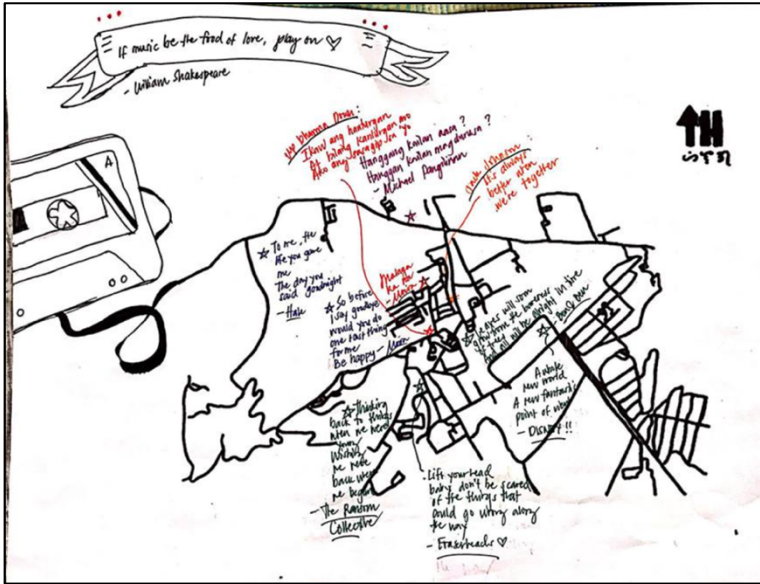 If music be the food of love, play on
- William Shakespeare
A
Up Dharma Down:
Ikaw ang
At bilang kantungan mo
Ako ang sasagip sa 'yo
Hanggang kailan aasa?
Hanggan kailan magdurusa?
- Michael Pangilinan
Jack Johnson:
It's always
better when
we're together
To me, the
life you gave
me
The day you
said goodnight
- Hale
So before
I say goodbye
would you do
one last thing
for me
Be happy - Moira
Malaya
ka na
- Moira
Leaves will soon
grow from the bareness
of trees
And all will be alright in the
- Ben&Ben
A whole
new world
A new fantastic
point of view
- DISNEY!!
Thinking
back to
when we were
young
Wishing
we were
back when
we began
- The Random
Collective
- Lift your head
baby don't be scared
of the things that
could go wrong along
the way
- Eraserheads